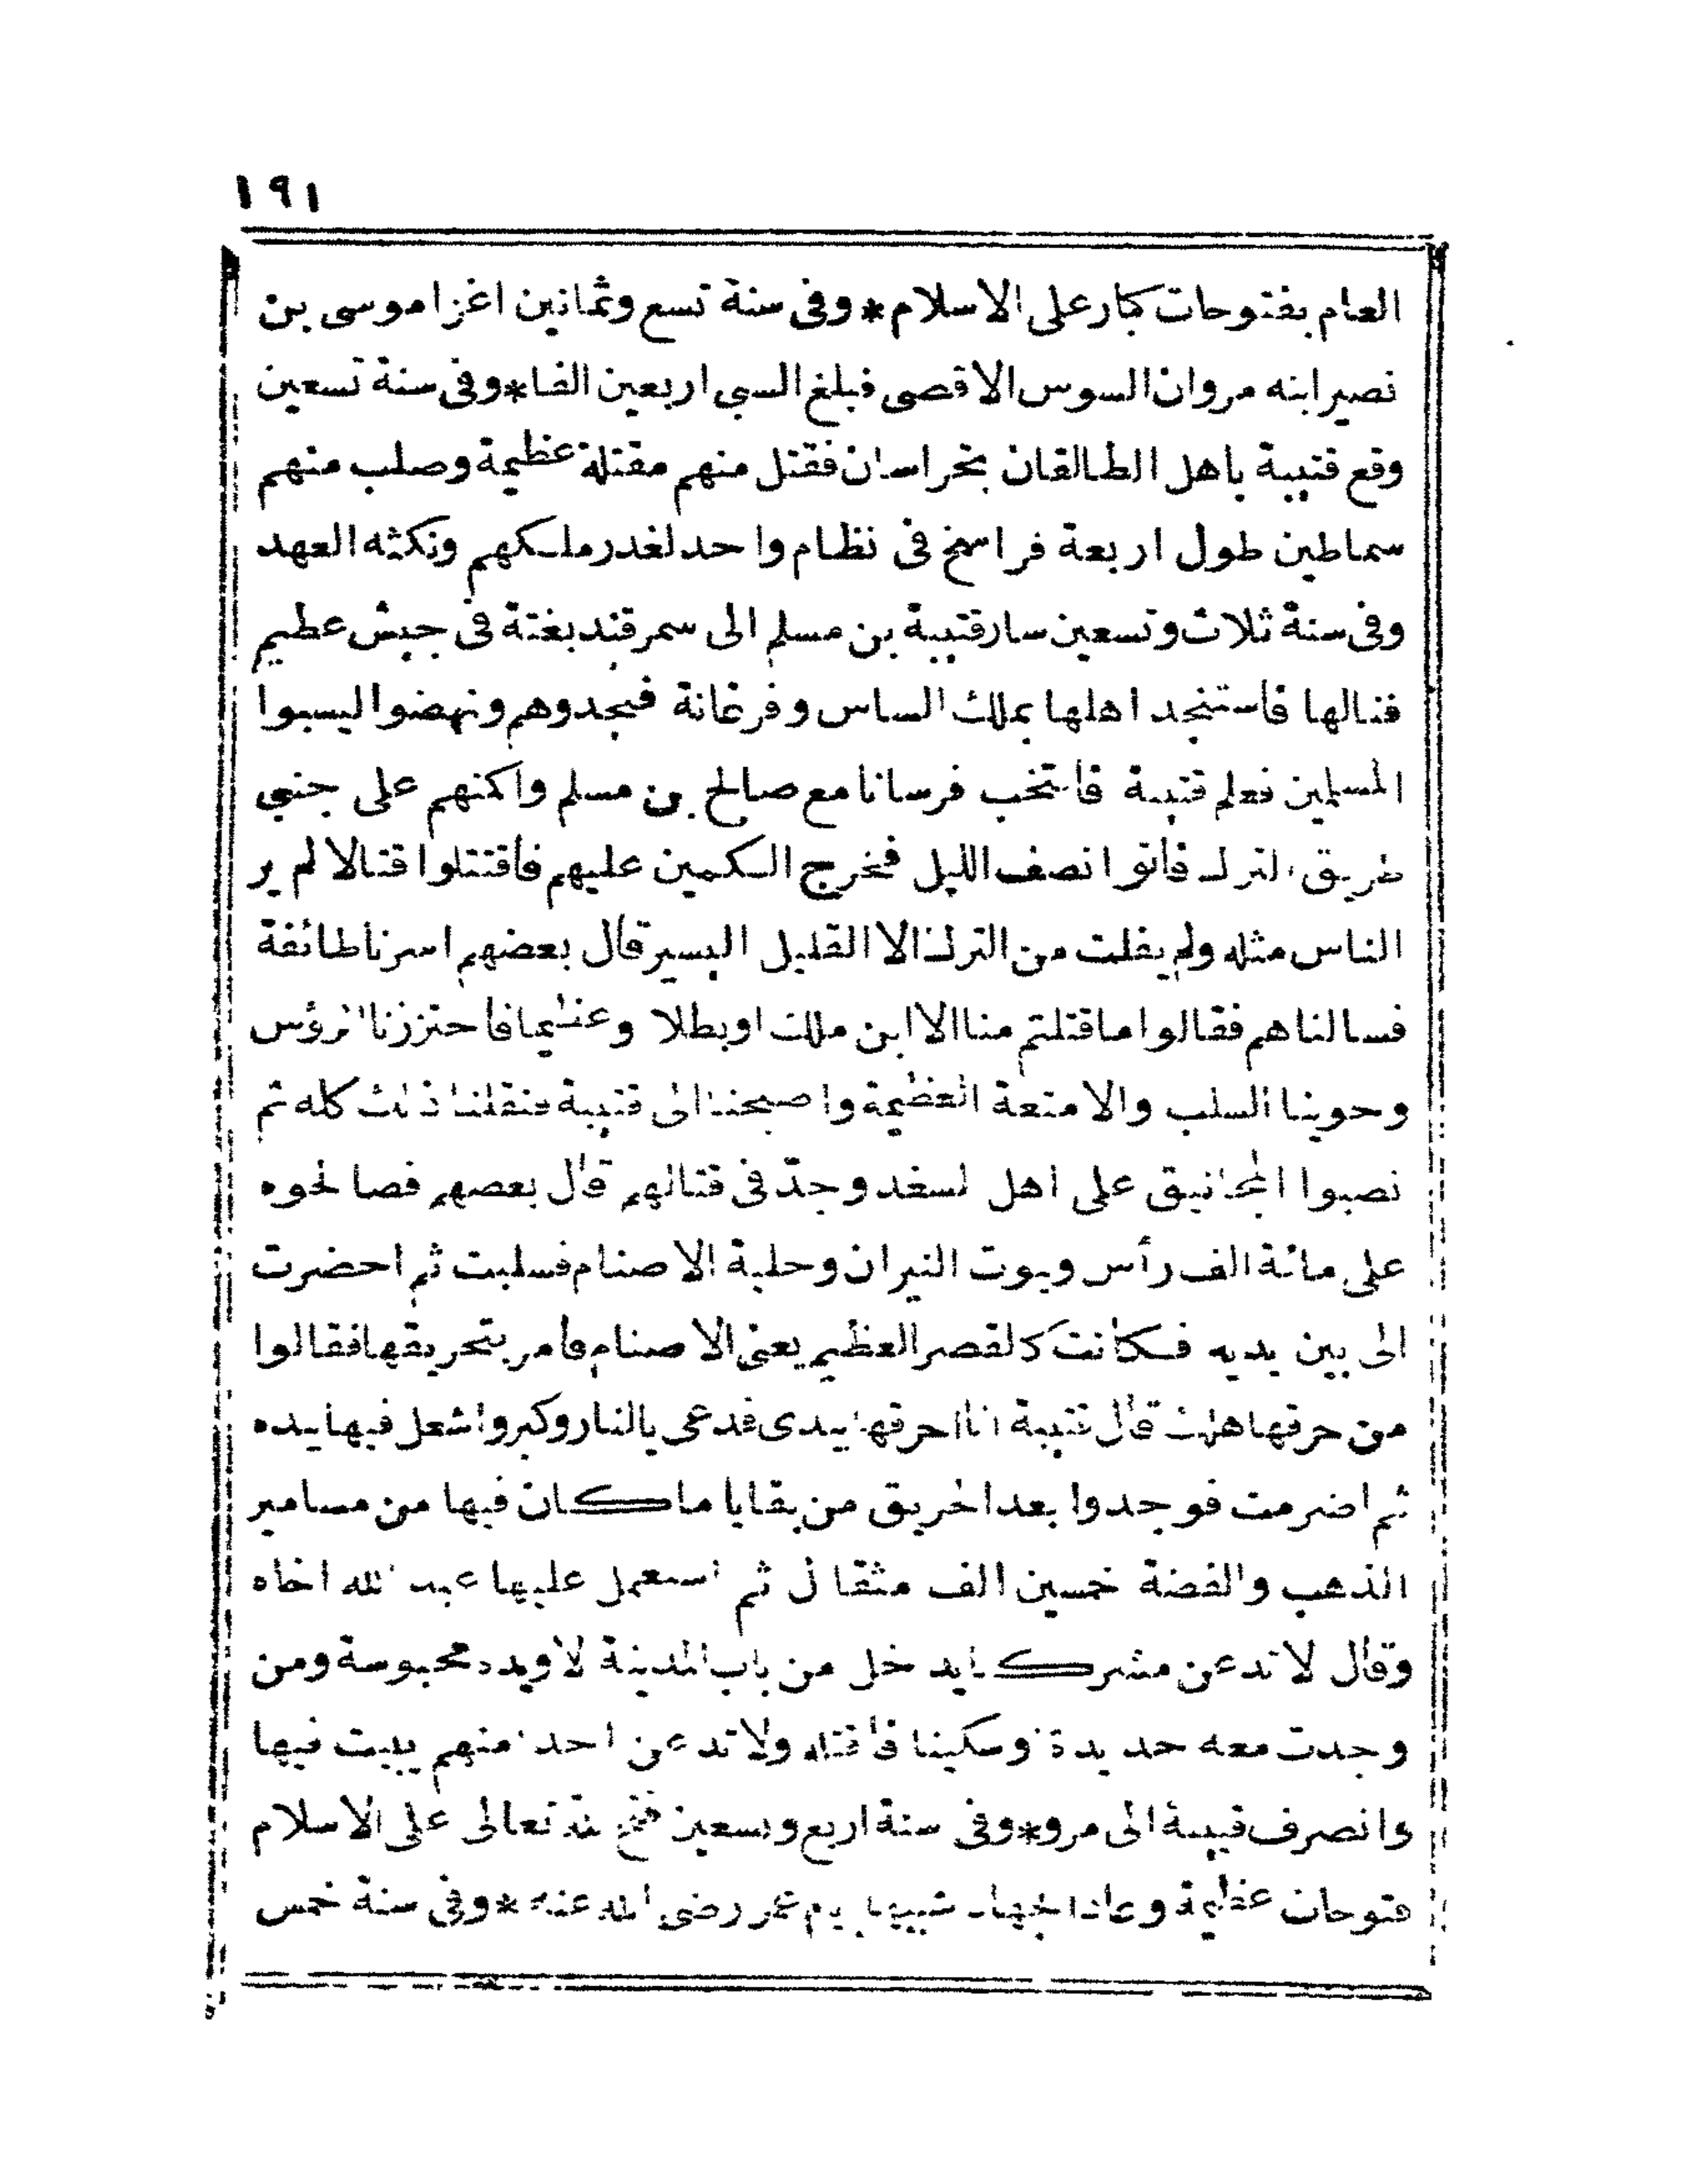 ١٩١
العام بفتوحات كبار على الاسلام * وفى سنة تسع وثمانين اغزا موسى بن
نصير ابنه مروان السوس الاقصى فبلغ السبى اربعين الفا * وفى سنة تسعين
وقع قتيبة باهل الطالقان بخراسان فقتل منهم مقتلة عظيمة وصلب منهم
سماطين طول اربعة فراسخ فى نظام واحد لغدر ملكهم ونكثه العهد
وفى سنة ثلاث وتسعين سار قتيبة بن مسلم الى سمرقند بغتة فى جيش عظيم
فنالها فاستنجد اهلها بملك الساس وفرغانة فنجدوهم ونهضوا ليسبوا
المسلمين فعلم قتيبة فانتخب فرسانا مع صالح بن مسلم واكنهم على جنبى
طريق الترك فاتوا نصف الليل فخرج الكمين عليهم فاقتتلوا قتالا لم ير
الناس مثله ولم يفلت من الترك الا القليل اليسير قال بعضهم اسرنا طائفة
فسالناهم فقالوا ما قتلتم منا الا ابن ملك او بطلا وعظيما فاحتززنا الرؤس
وحوينا السلب والامتعة العظيمة واصبحنا الى قتيبة فنقلنا ذلك كله ثم
نصبوا المجانيق على اهل لسغد وجدّ فى قتالهم قال بعضهم فصالحوه
على مائة الف رأس وبيوت النيران وحلية الاصنام فسلبت ثم احضرت
الى بين يديه فكانت كالقصر العظيم يعنى الاصنام فامر بتحريقها فقالوا
من حرقها هلك قال قتيبة انا احرقها بيدى فدعى بالنار وكبر واشعل فيها بيده
ثم اضرمت فوجدوا بعد الحريق من بقايا ما كان فيها من مسامير
الذهب والفضة خمسين الف مثقال ثم استعمل عليها عبد الله اخاه
وقال لا تدعن مشركا يدخل من باب المدينة لا ويده محبوسة ومن
وجدت معه حديدة وسكينا فاقتله ولا تدعن احدا منهم يبيت فيها
وانصرف قتيبة الى مرو * وفى سنة اربع وتسعين فتح الله تعالى على الاسلام
فتوحات عظيمة وعاد الجهاد شبيها بايام عمر رضى الله عنه * وفى سنة خمس